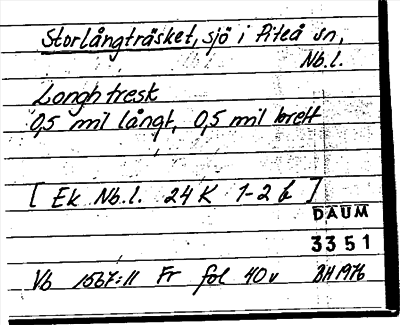 Storlångträsket, sjö i Piteå sn,
Nb.l.
Longhtresk
0,5 mil långt, 0,5 mil brett
[ Ek Nb.l. 24 K 1-2 b ]
DAUM
3351
Vb 1567:11 Fr fol 40v BH 1976